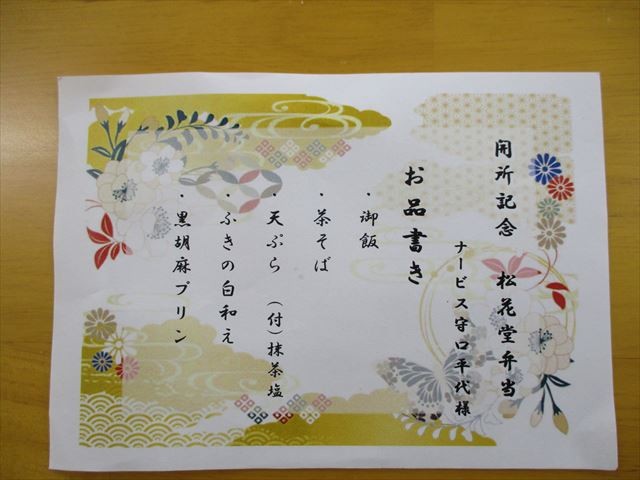 開所記念 松花堂弁当
ナービス守口平代様
お品書き
・御飯
・茶そば
・天ぷら (付)抹茶塩
・ふきの白和え
・黒胡麻プリン